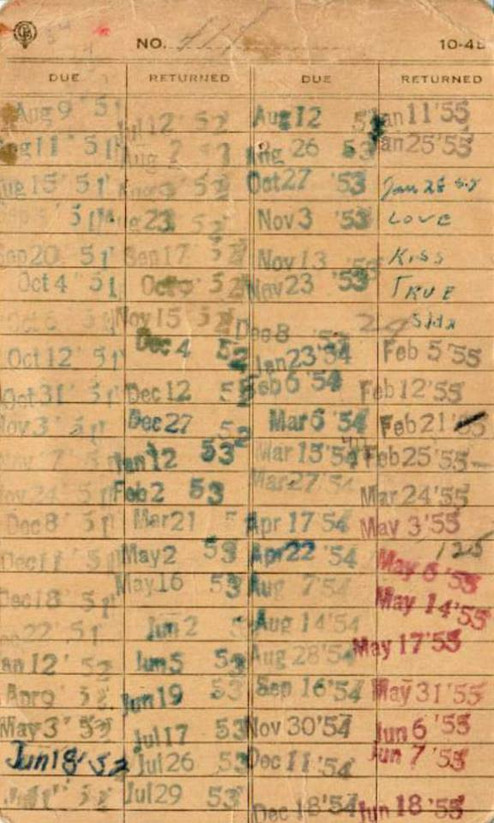 NO. 10-4
DUE RETURNED DUE RETURNED
Aug 9 '51 Jul 12 52 Aug 12 53 Jan 11 '55
Aug 11 '51 Aug 2 Aug 26 53 Jan 25 '55
Aug 15 '51 52 Oct 27 '53 Jan 28
51 Aug 23 52 Nov 3 '53 LOVE
Sep 20 '51 Sep 17 52 Nov 13 '53 KISS
Oct 4 '51 Oct 52 Nov 23 '53 TRUE
Nov 15 52 Dec 8 24
Oct 12 '51 Dec 4 52 Jan 23 '54 Feb 5 '55
Oct 31 '51 Dec 12 52 Feb 6 '54 Feb 12 '55
Nov 3 '51 Dec 27 52 Mar 6 '54 Feb 21 '55
Nov 7 '51 Jan 12 53 Mar 15 '54 Feb 25 '55
Nov 24 '51 Feb 2 53 Mar 27 '54 Mar 24 '55
Dec 8 '51 Mar 21 Apr 17 54 May 3 '55
125
Dec 11 '51 May 2 53 Apr 22 '54 May 6 '55
Dec 18 '51 May 16 53 Aug 7 '54 May 14 '55
22 '51 Jun 2 Aug 14 '54
Jan 12 '52 Jun 5 53 Aug 28 '54 May 17 '55
Apr Jun 19 53 Sep 16 '54 May 31 '55
May 3 '52 Jul 17 53 Nov 30 '54 Jun 6 '55
Jun 18 '52 Jul 26 53 Dec 11 '54 Jun 7 '55
52 Jul 29 53 Dec 18 '54 Jun 18 '55